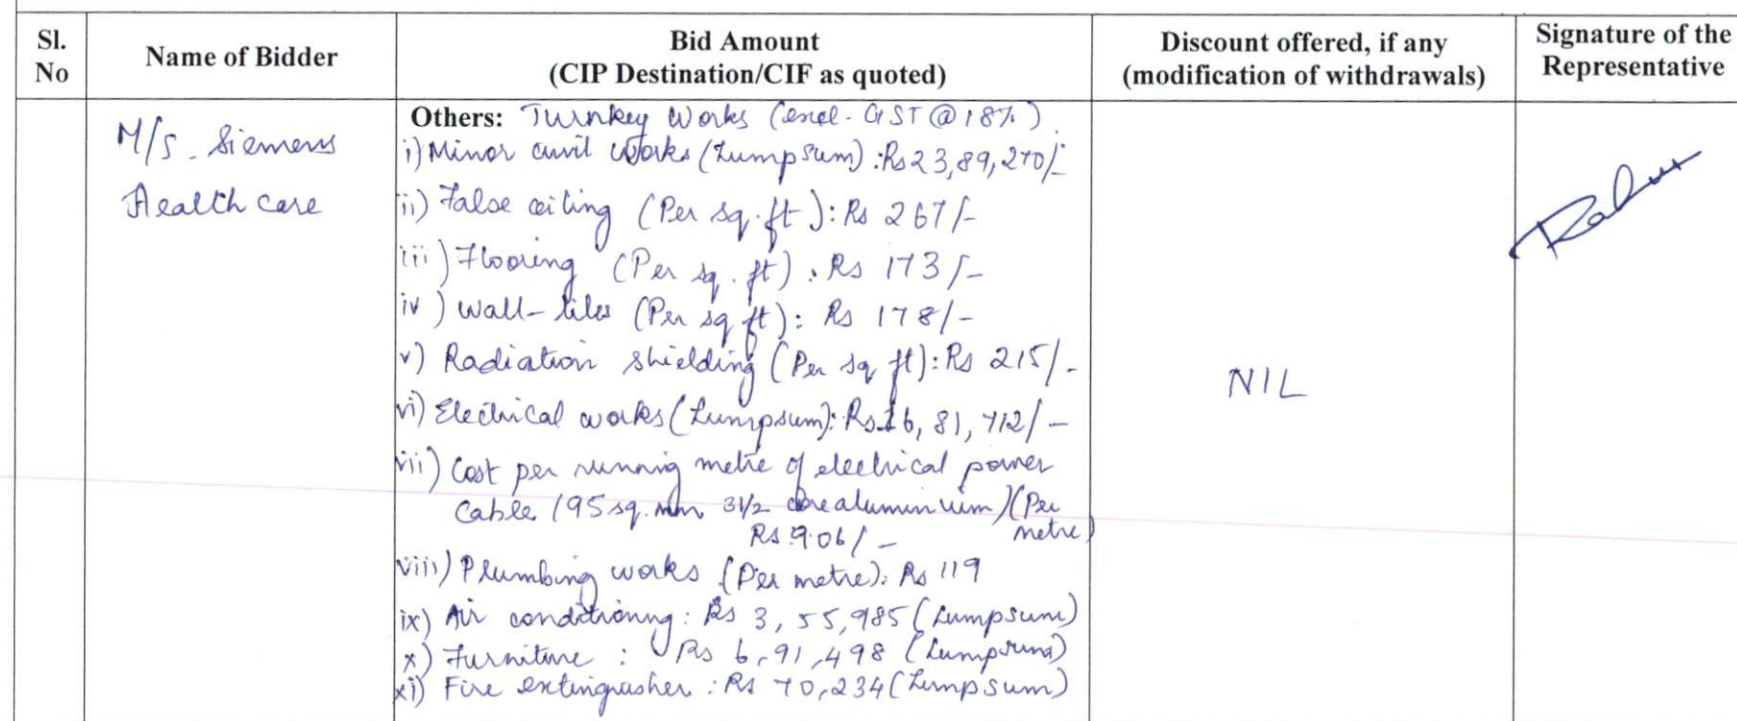 Sl. No
Name of Bidder
Bid Amount
(CIP Destination/CIF as quoted)
Discount offered, if any
(modification of withdrawals)
Signature of the
Representative
M/s. Siemens
Health care
Others: Turnkey Works (excl. GST @ 18%)
i) Minor civil Works (Lumpsum) : Rs 23,89,270/-
ii) False ceiling (Per sq. ft) : Rs 267/-
iii) Flooring (Per sq. ft) : Rs 173/-
iv) Wall-tiles (Per sq ft) : Rs 178/-
v) Radiation shielding (Per sq ft) : Rs 215/-
vi) Electrical works (Lumpsum): Rs 16, 81, 712/-
vii) Cost per running metre of electrical power
Cable (95 sq. mm 3 1/2 core aluminium) (Per
metre)
Rs 906/-
viii) Plumbing works (Per metre): Rs 119
ix) Air conditioning : Rs 3, 55,985 (Lumpsum)
x) Furniture : Rs 6,91,498 (Lumpsum)
xi) Fire extinguisher : Rs 70,234 (Lumpsum)
NIL